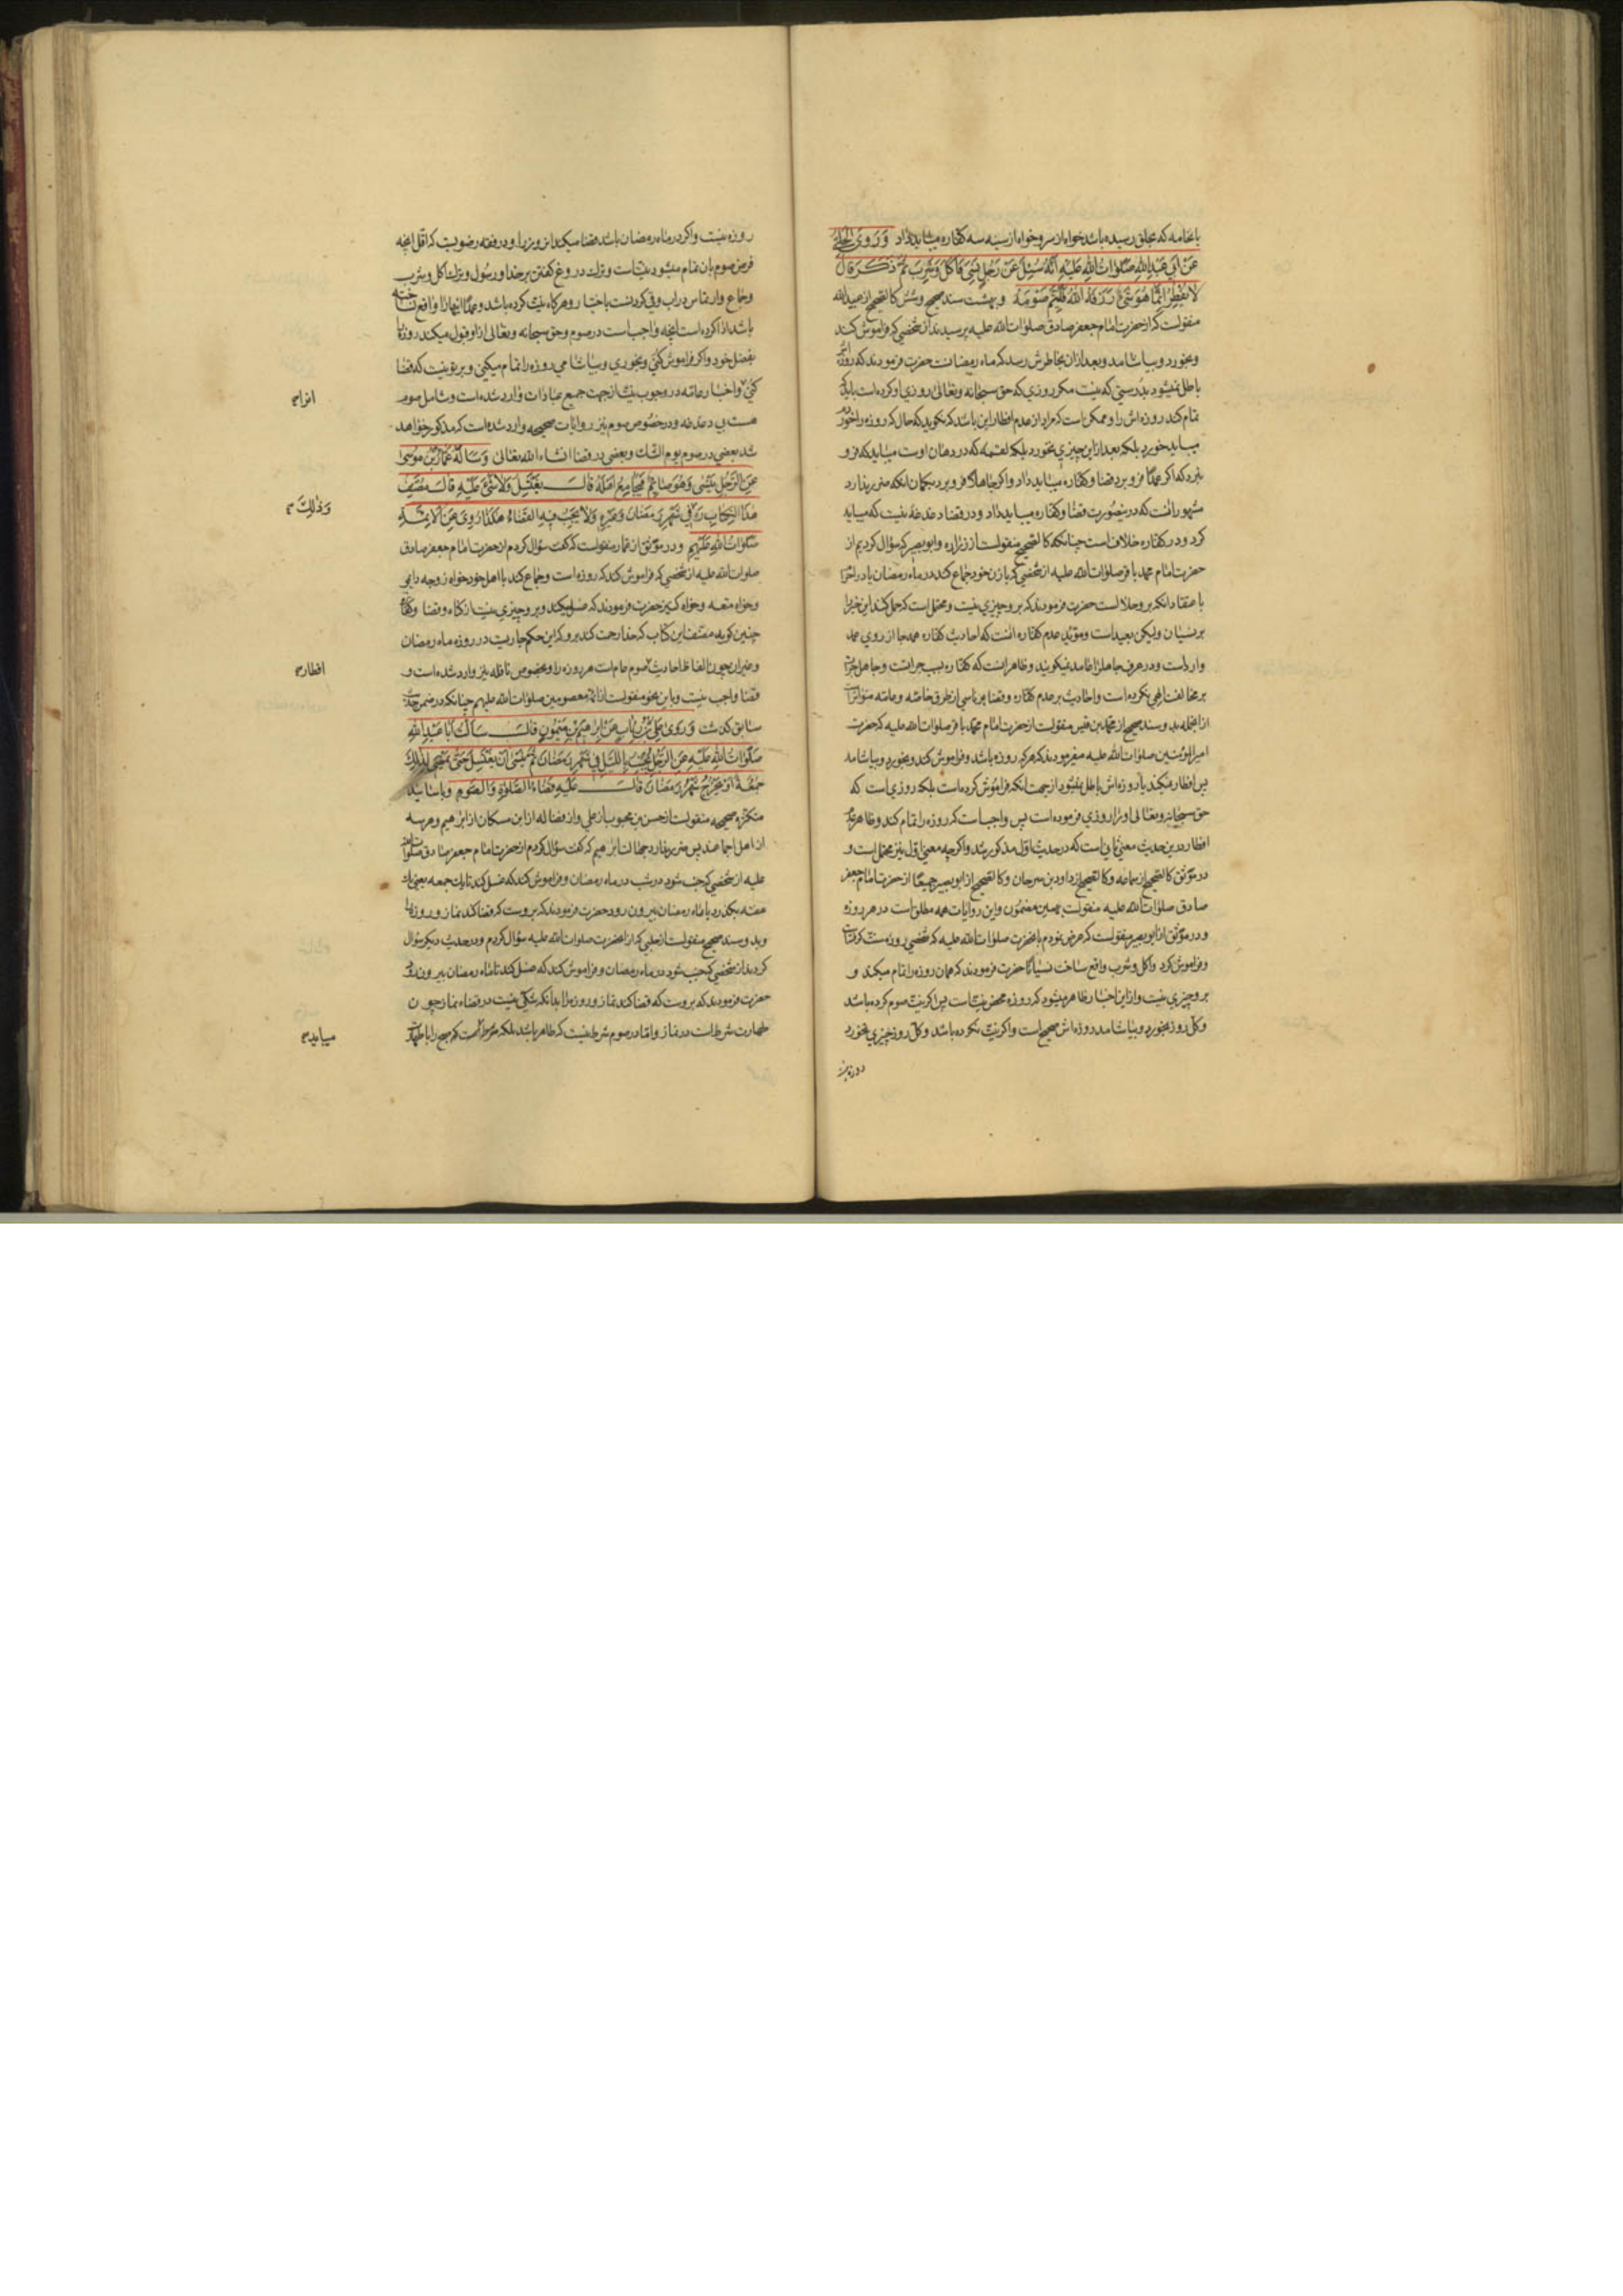 باخامه که بحلق رسیده باشد خواه از سر و خواه از سینه سه کفاره میباید داد وَرَوَی الحَلَبِیُّ
عَنْ اَبی عَبْدِ اللهِ صَلَوٰاتُ اللهِ عَلَیْهِ اَنَّهُ سُئِلَ عَنْ رَجُلٍ نَسِیَ فَاَکَلَ وَشَرِبَ ثُمَّ ذَکَرَ قٰالَ
لٰا یُفْطِرُ اِنَّمٰا هُوَ شَیْءٌ رَزَقَهُ اللهُ فَلْیُتِمَّ صَوْمَهُ و بهشت سند صحیح و شش کالصحیح از عبیدالله
منقولست که از حضرت امام جعفر صادق صلوات الله علیه پرسیدند از شخصی که فراموش کند
و بخورد و بیاشامد و بعد از آن بخاطرش رسد که ماه رمضانست حضرت فرمودند که روزه‌اش
باطل نمیشود بدرستی که نیست مکر روزی که حق سبحانه وتعالی روزی او کرده است باید که
تمام کند روزه اش را و ممکن است که مراد از عدم افطار این باشد که نکوید که حال که روزه را خوردم
میباید خورد بلکه بعد از این چیزی نخورد بلکه لقمه که در دهان اوست میباید که فرو
نبرد که اکر عمدا فرو برد قضا و کفاره میباید داد و اکر جاهلا فرو برد بکمان انکه ضرر ندارد
مشهور انست که در ینصورت قضا و کفاره میباید داد و در قضا دغدغه نیست که میباید
کرد و در کفاره خلاف است چنانکه کالصحیح منقولست از زراره و ابوبصیر که سؤال کردیم از
حضرت امام محمد باقر صلوات الله علیه از شخصی که با زن خود جماع کند در ماه رمضان یا در احرام
باعتقاد انکه بر و حلالست حضرت فرمودند که بر و چیزی نیست و محتمل است که حمل کنند این خبر را
بر نسیان ولیکن بعید است و مؤید عدم کفاره انست که احادیث کفاره همه جا از روی عمد
وارد است و در عرف جاهل را عامد نمیکویند و ظاهر انست که کفاره بسبب جراتست و جاهل جرات
بر مخالفت الهی نکرده است و احادیث بر عدم کفاره و قضا بر ناسی از طرق خاصه و عامه متواتر است
از انجمله بدو سند صحیح از محمد بن قیس منقولست از حضرت امام محمد باقر صلوات الله علیه که حضرت
امیر المؤمنین صلوات الله علیه میفرمودند که هر که روزه باشد و فراموش کند و بخورد و بیاشامد
پس افطار نکند یا روزه اش باطل نمیشود از جهت انکه فراموش کرده است بلکه روزی است که
حق سبحانه وتعالی او را روزی فرموده است پس واجبست که روزه را تمام کند و ظاهر عدم
افطار در ین حدیث معنی ثانی است که در حدیث اول مذکور شد و اکرچه معنی اول نیز محتمل است و
در موثق کالصحیح از سماعه و کالصحیح از داود بن سرحان و کالصحیح از ابوبصیر جمیعا از حضرت امام جعفر
صادق صلوات الله علیه منقولست بهمین مضمون و این روایات همه مطلق است در هر روزه
و در موثق از ابو بصیر منقولست که عرض نمودم بانحضرت صلوات الله علیه که شخصی روزه سنت کرفت
و فراموش کرد و اکل و شرب واقع ساخت نسیانا حضرت فرمودند که همان روزه را تمام میکند و
بر و چیزی نیست و از این اخبار ظاهر میشود که روزه محض نیت است پس اکر نیت صوم کرده باشد
و کل روز بخورد و بیاشامد روزه اش صحیح است و اکر نیت نکرده باشد و کل روز چیزی نخورد
روزه نیست
روزه نیست و اکر در ماه رمضان باشد قضا میکند ان روز را و در فقه رضویست که اقل انچه
فرض صوم بان تمام میشود نیت است و ترک دروغ کفتن بر خدا و رسول و ترک اکل و شرب
و جماع و ارتماس در اب و قی کردنست باختیار و هرکاه نیت کرده باشد و عمدا اینها را واقع نساخته
باشد ادا کرده است انچه واجب است در صوم و حق سبحانه وتعالی از او قبول میکند روزه را
بفضل خود و اکر فراموش کنی و بخوری و بیاشامی روزه را تمام میکنی و بر تو نیست که قضا
کنی و اخبار عامه در وجوب نیت از جهت جمیع عبادات وارد شده است و شامل صوم
هست بی دغدغه و در خصوص صوم نیز روایات صحیحه وارد شده است که مذکور خواهد
شد بعضی در صوم یوم الشک و بعضی در قضا انشاء الله تعالی وَسَاَلَهُ عَمّٰارُ بْنُ مُوسیٰ
عَنِ الرَّجُلِ یَنْسیٰ وَهُوَ صٰائِمٌ فَجٰامَعَ اَهْلَهُ قٰالَ یَغْتَسِلُ وَلٰا شَیْءَ عَلَیْهِ قٰالَ مُصَنِّفُ
هٰذَا الْکِتٰابِ رَه فی شَهْرِ رَمَضٰانَ وَغَیْرِهِ وَلٰا یَجِبُ فِیهِ الْقَضٰاءُ هٰکَذٰا رُوِیَ عَنِ الْاَئِمَّةِ
صَلَوٰاتُ اللهِ عَلَیْهِمْ و در موثق از عمار منقولست که کفت سؤال کردم از حضرت امام جعفر صادق
صلوات الله علیه از شخصی که فراموش کند که روزه است و جماع کند با اهل خود خواه زوجه دایمی
و خواه متعه و خواه کنیز حضرت فرمودند که غسل میکند و بر و چیزی نیست از کناه و قضا و کفاره
چنین کوید مصنف این کتاب که خدا رحمت کند بر و که این حکم جاریست در روزه ماه رمضان
و غیر ان چون الفاظ احادیث صوم عام است هر روزه را و بخصوص نافله نیز وارد شده است و
قضا واجب نیست و باین نحو منقولست از ائمه معصومین صلوات الله علیهم چنانکه در ضمن حدیث
سابق کذشت وَرَوٰی عَلِیُّ بْنُ رِئٰابٍ عَنْ اِبْرٰاهِیمَ بْنِ مَیْمُونٍ قٰالَ سَاَلْتُ اَبٰا عَبْدِ اللهِ
صَلَوٰاتُ اللهِ عَلَیْهِ عَنِ الرَّجُلِ یُجْنِبُ بِاللَّیْلِ فی شَهْرِ رَمَضٰانَ ثُمَّ یَنْسیٰ اَنْ یَغْتَسِلَ حَتّیٰ یَمْضِیَ لِذٰلِکَ
جُمْعَةٌ اَوْ یَخْرُجَ شَهْرُ رَمَضٰانَ قٰالَ عَلَیْهِ قَضٰاءُ الصَّلٰوةِ وَالصَّوْمِ و باسانید
متکثره صحیحه منقولست از حسن بن محبوب از علی و از فضاله از ابن مسکان از ابرهیم و هر سه
از اهل اجماعند پس ضرر ندارد جهالت ابرهیم که کفت سؤال کردم از حضرت امام جعفر صادق صلوات الله
علیه از شخصی که جنب شود در شب در ماه رمضان و فراموش کند که غسل کند تا یک جمعه یعنی یک
هفته بکذرد یا ماه رمضان بیرون رود حضرت فرمودند که بر وست که قضا کند نماز و روزه را
و بدو سند صحیح منقولست از حلبی که از انحضرت صلوات الله علیه سؤال کردم و در حدیث دیکر سؤال
کردند از شخصی که جنب شود در ماه رمضان و فراموش کند که غسل کند تا ماه رمضان بیرون رود
حضرت فرمودند که بر وست که قضا کند نماز و روزه را بدانکه شکی نیست در قضاء نماز چون
طهارت شرط است در نماز و اما در صوم شرط نیست که طاهر باشد بلکه شرط است که صبح را با طهارت
وَذٰلِکَ
افطار
میباید